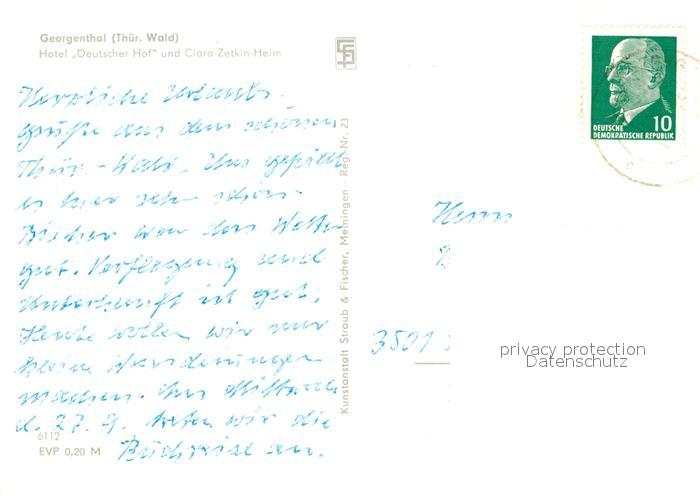 Georgenthal (Thür. Wald)
Hotel „Deutscher Hof" und Clara-Zetkin-Heim
Herzliche Urlaubs-
grüße aus dem schönen
Thür.-Wald. Uns gefällt
es hier sehr schön.
Bisher war das Wetter
gut. Verpflegung und
Unterkunft ist gut.
Heute wollen wir nur
kleine Wanderungen
machen. Am Mittwoch
d. 27. 9. treten wir die
Rückreise an.
6112
EVP 0,20 M
Kunstanstalt Straub & Fischer, Meiningen · Reg. Nr. 23
10
DEUTSCHE
DEMOKRATISCHE REPUBLIK
Herrn
3501
privacy protection
Datenschutz